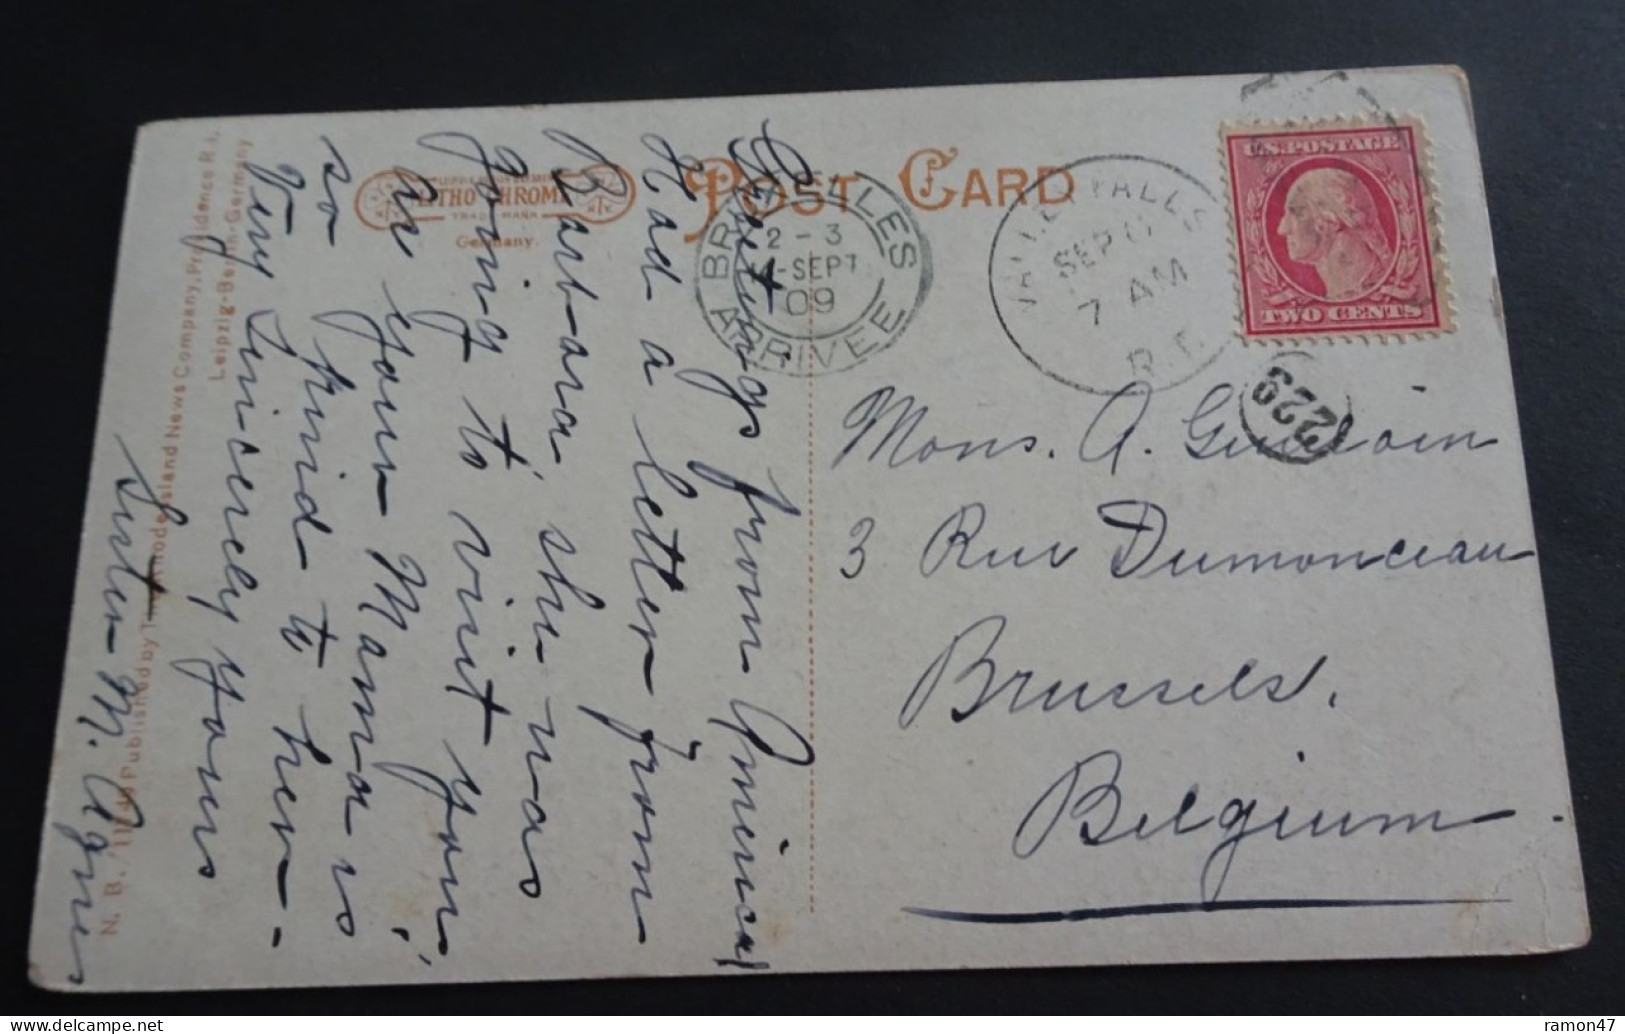 POST CARD
LITHO-CHROME
TRADE MARK
Germany.
BRUXELLES
2-3
SEPT
09
ARRIVEE
VALLEY FALLS
SEP
7 AM
R.I.
U.S. POSTAGE
TWO CENTS
2229
Mons. A.
3 Rue Dumonceau
Brussels.
Belgium.
Greetings from America
Had a letter from
Barbara she was
going to visit you,
as your Mama is
so kind to her.
Very Sincerely yours
Sister M. Agnes
N. B. Published by The Rhode Island News Company, Providence R.I.
Leipzig-Berlin-Germany
ramon47